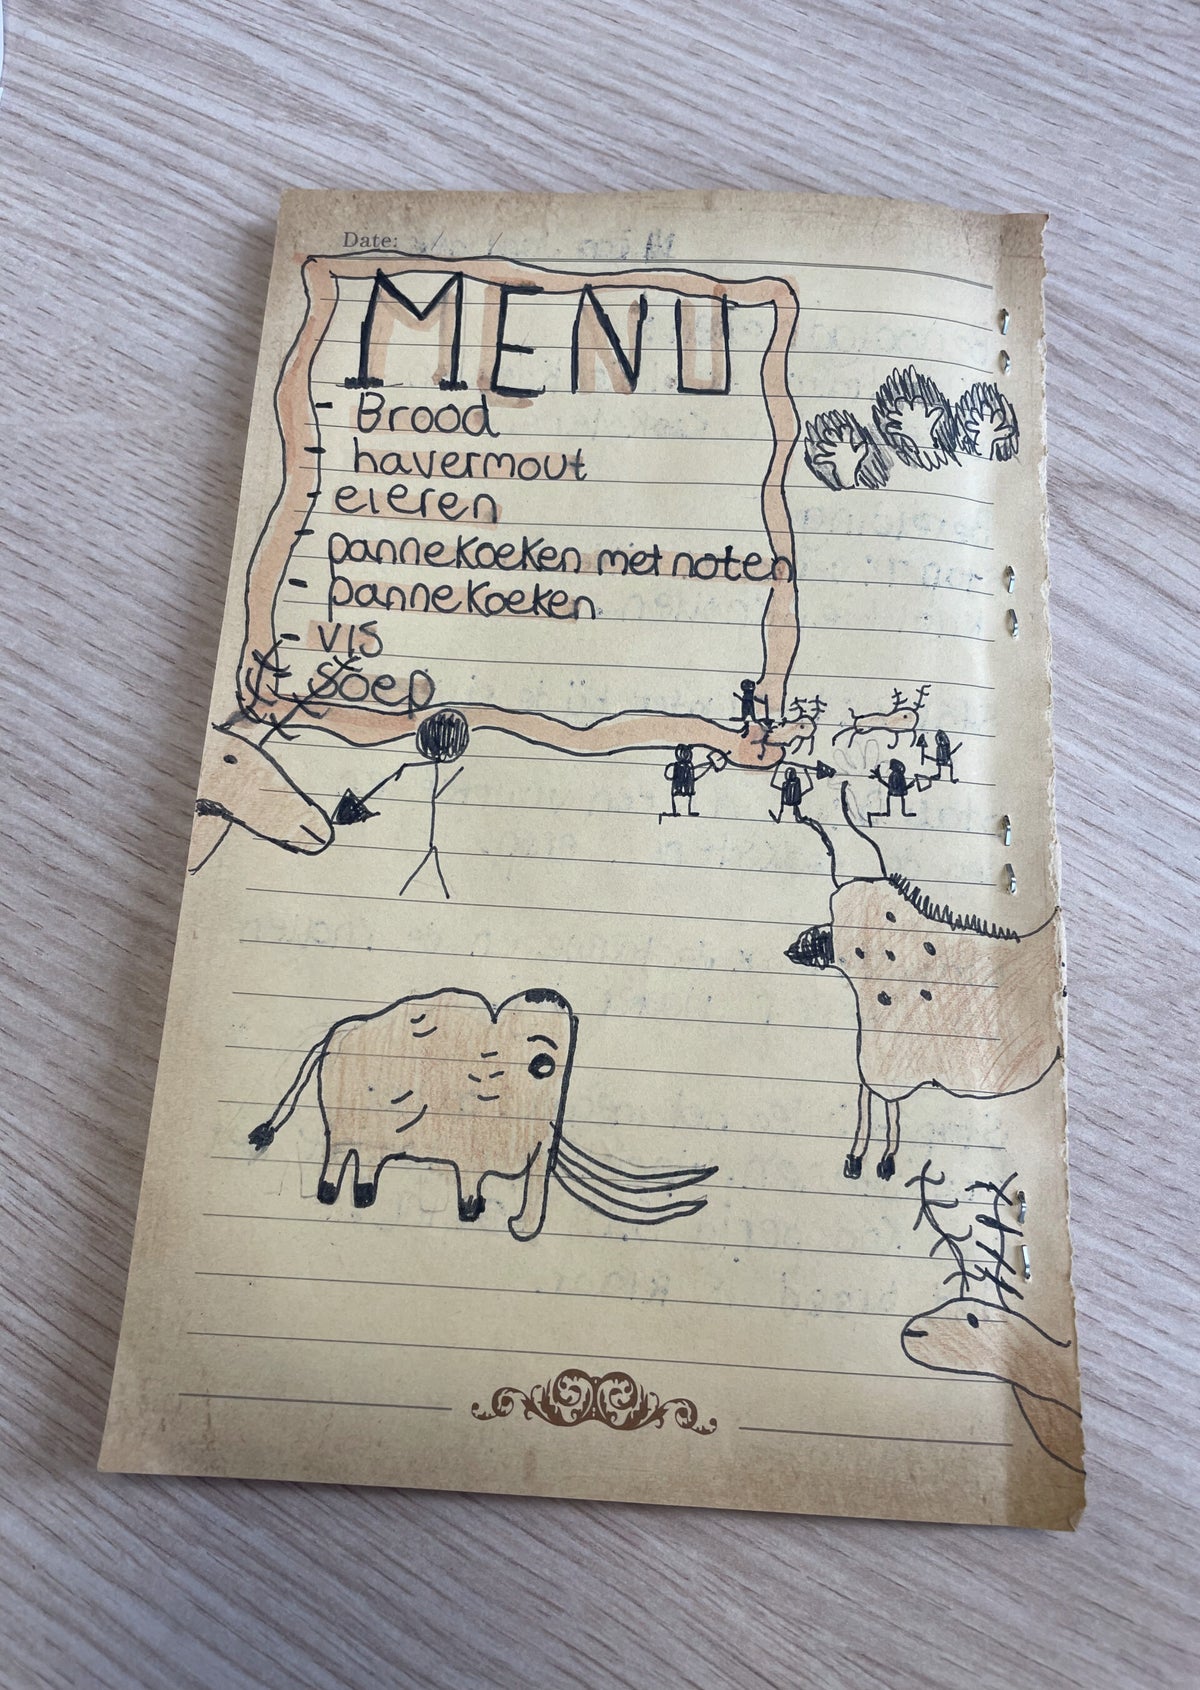 Date:
MENU
- Brood
- havermout
- eieren
- pannekoeken met noten
- pannekoeken
- vis
- soep